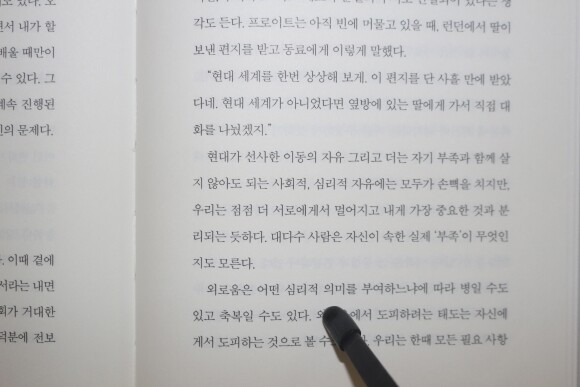 도 있다. 오
면서 내가 할
배울 때만이
수 있다. 그
계속 진행된
인의 문제다.
. 이때 곁에
서라는 내면
회가 거대한
덕분에 전보
각도 든다. 프로이트는 아직 빈에 머물고 있을 때, 런던에서 딸이
보낸 편지를 받고 동료에게 이렇게 말했다.
“현대 세계를 한번 상상해 보게. 이 편지를 단 사흘 만에 받았
다네. 현대 세계가 아니었다면 옆방에 있는 딸에게 가서 직접 대
화를 나눴겠지.”
현대가 선사한 이동의 자유 그리고 더는 자기 부족과 함께 살
지 않아도 되는 사회적, 심리적 자유에는 모두가 손뼉을 치지만,
우리는 점점 더 서로에게서 멀어지고 내게 가장 중요한 것과 분
리되는 듯하다. 대다수 사람은 자신이 속한 실제 ‘부족’이 무엇인
지도 모른다.
외로움은 어떤 심리적 의미를 부여하느냐에 따라 병일 수도
있고 축복일 수도 있다. 에서 도피하려는 태도는 자신에
게서 도피하는 것으로 볼 수 우리는 한때 모든 필요 사항